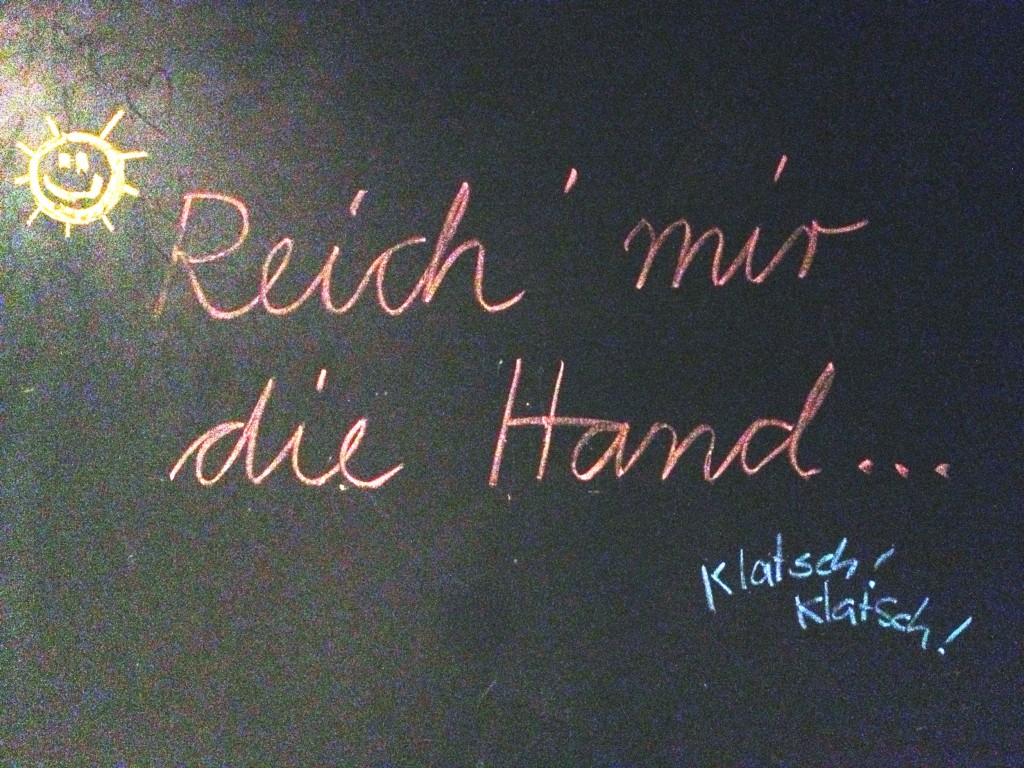 Reich' mir
die Hand...
Klatsch!
Klatsch!